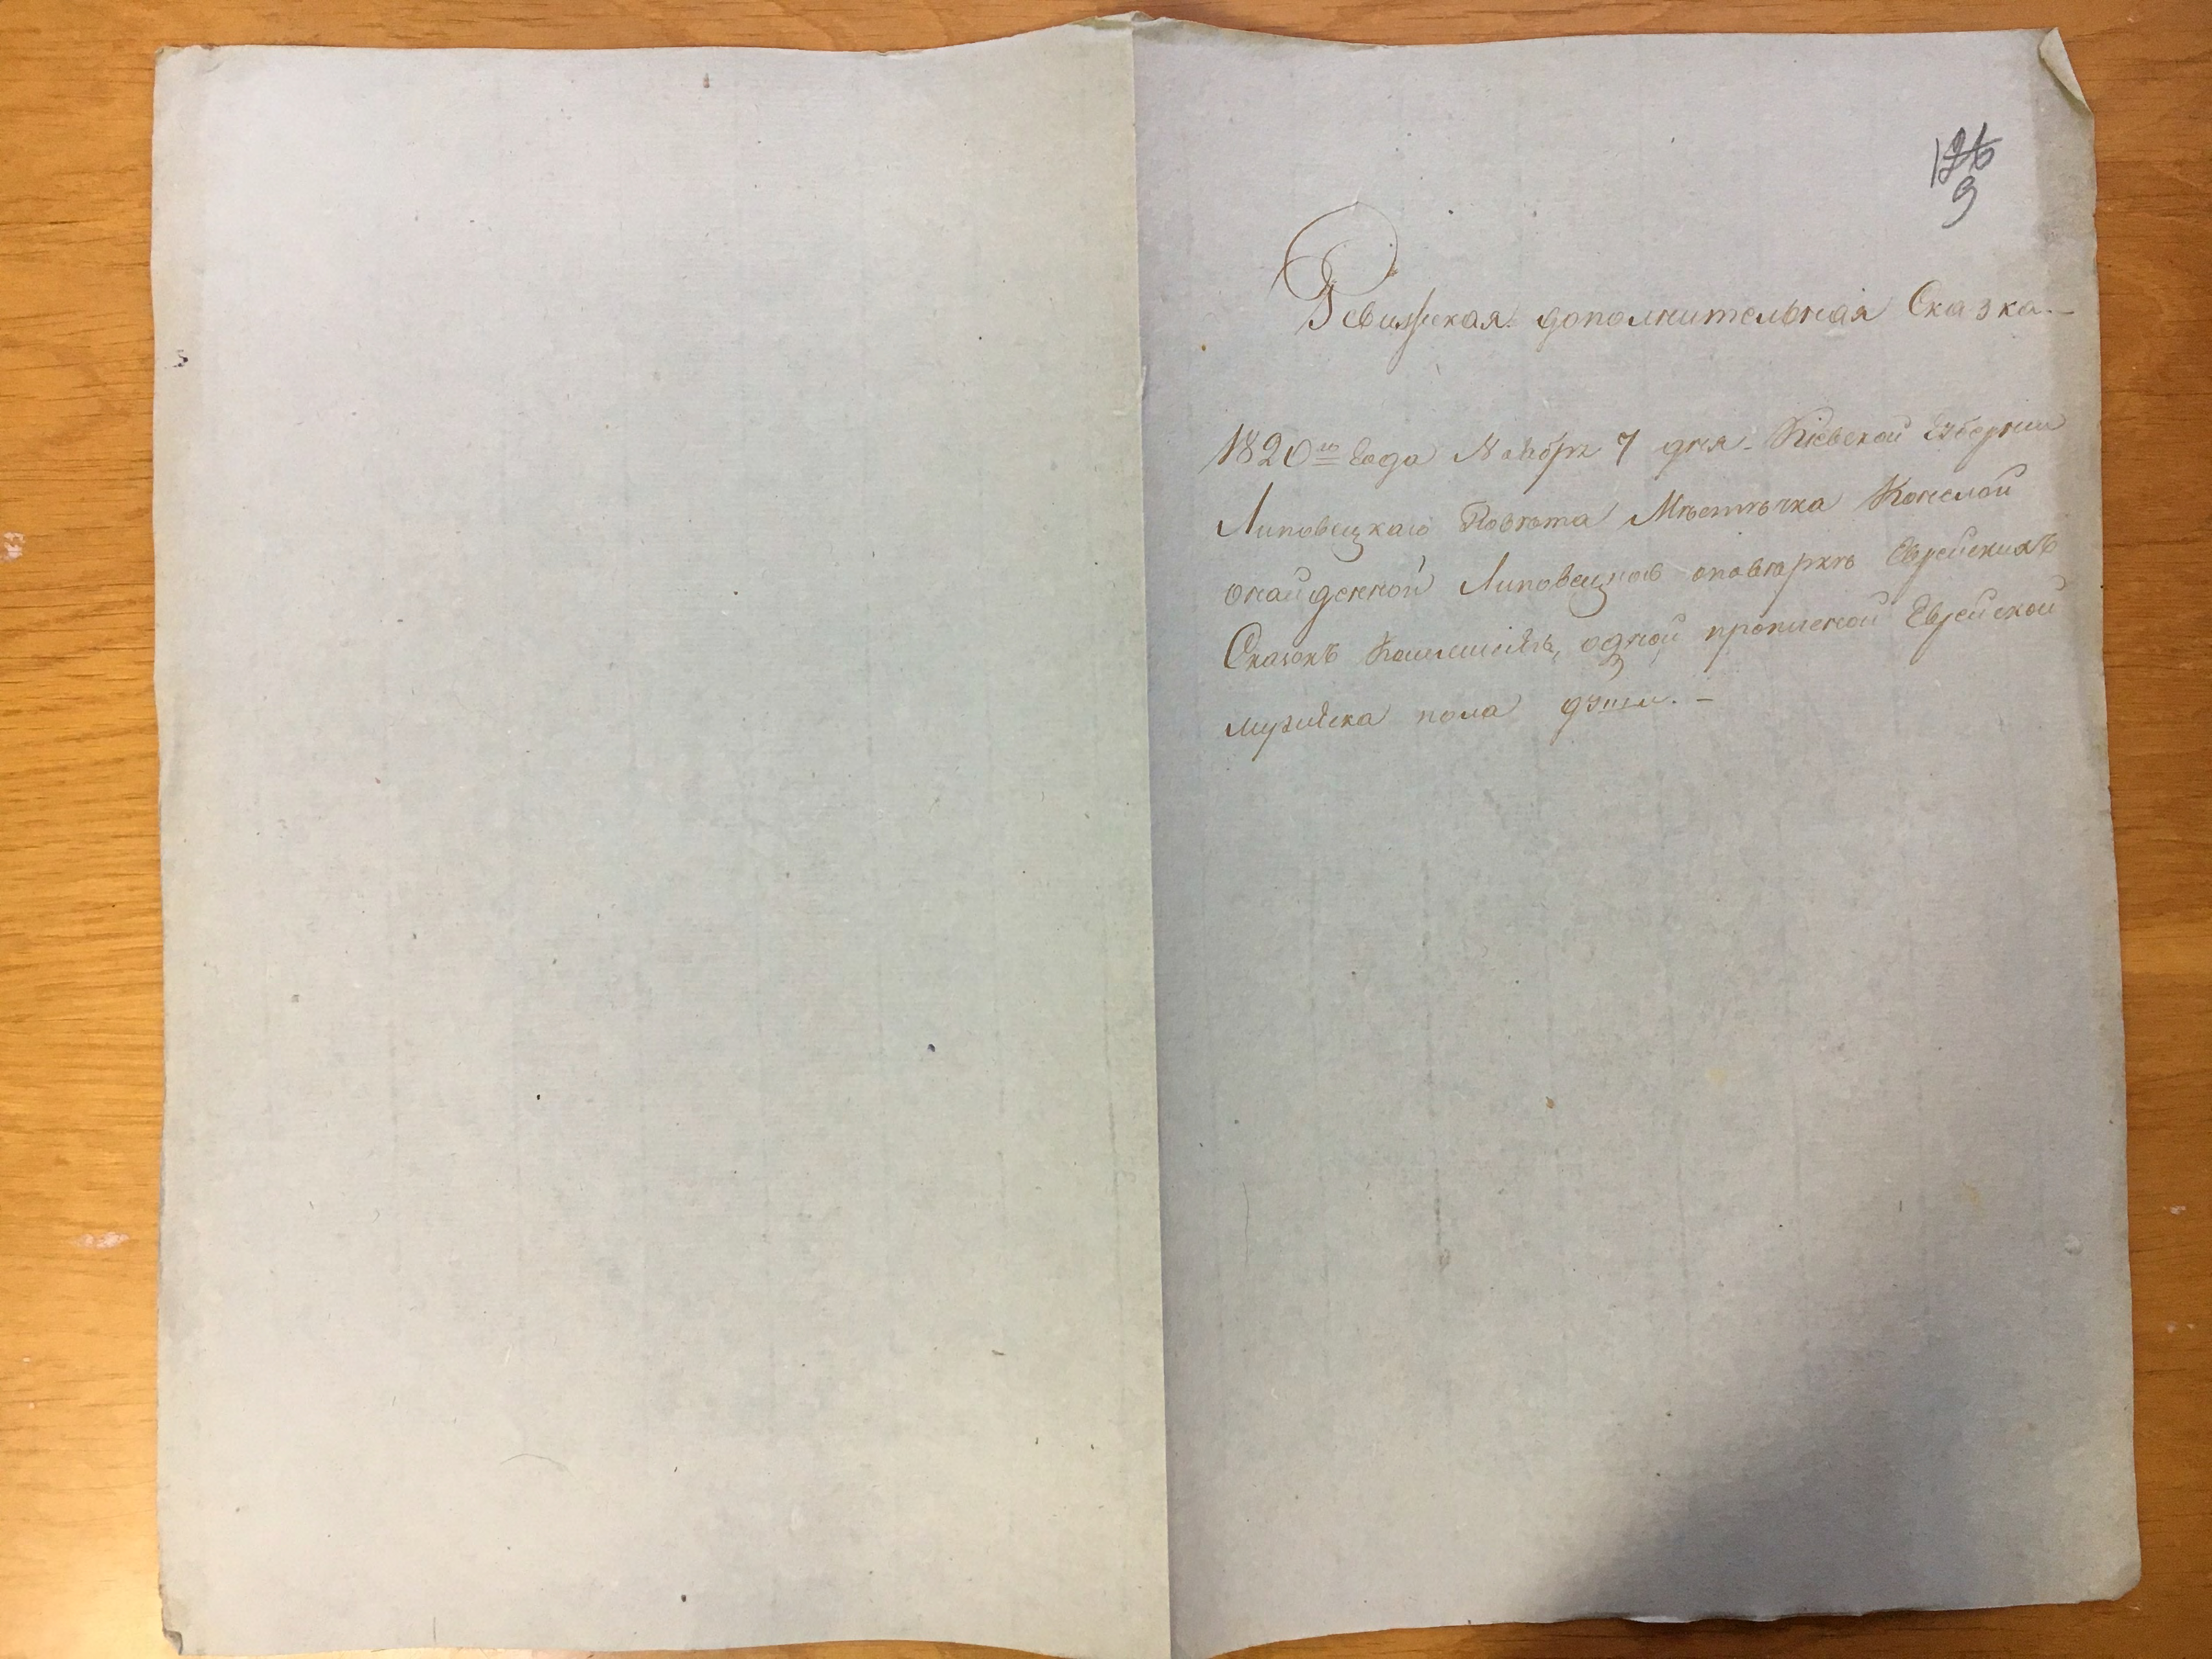 126
9
Ревизская дополнительная Сказка. –
1820го Года Ноября 7 дня. Кіевской Губерніи
Липовецкаго Повѣта Мѣстѣчка Конелой
онайденной Липовецкою оповѣркѣ Еврейскихъ
Сказокъ Комисіею, одной прописной Еврейской
мужеска пола дѹши. –